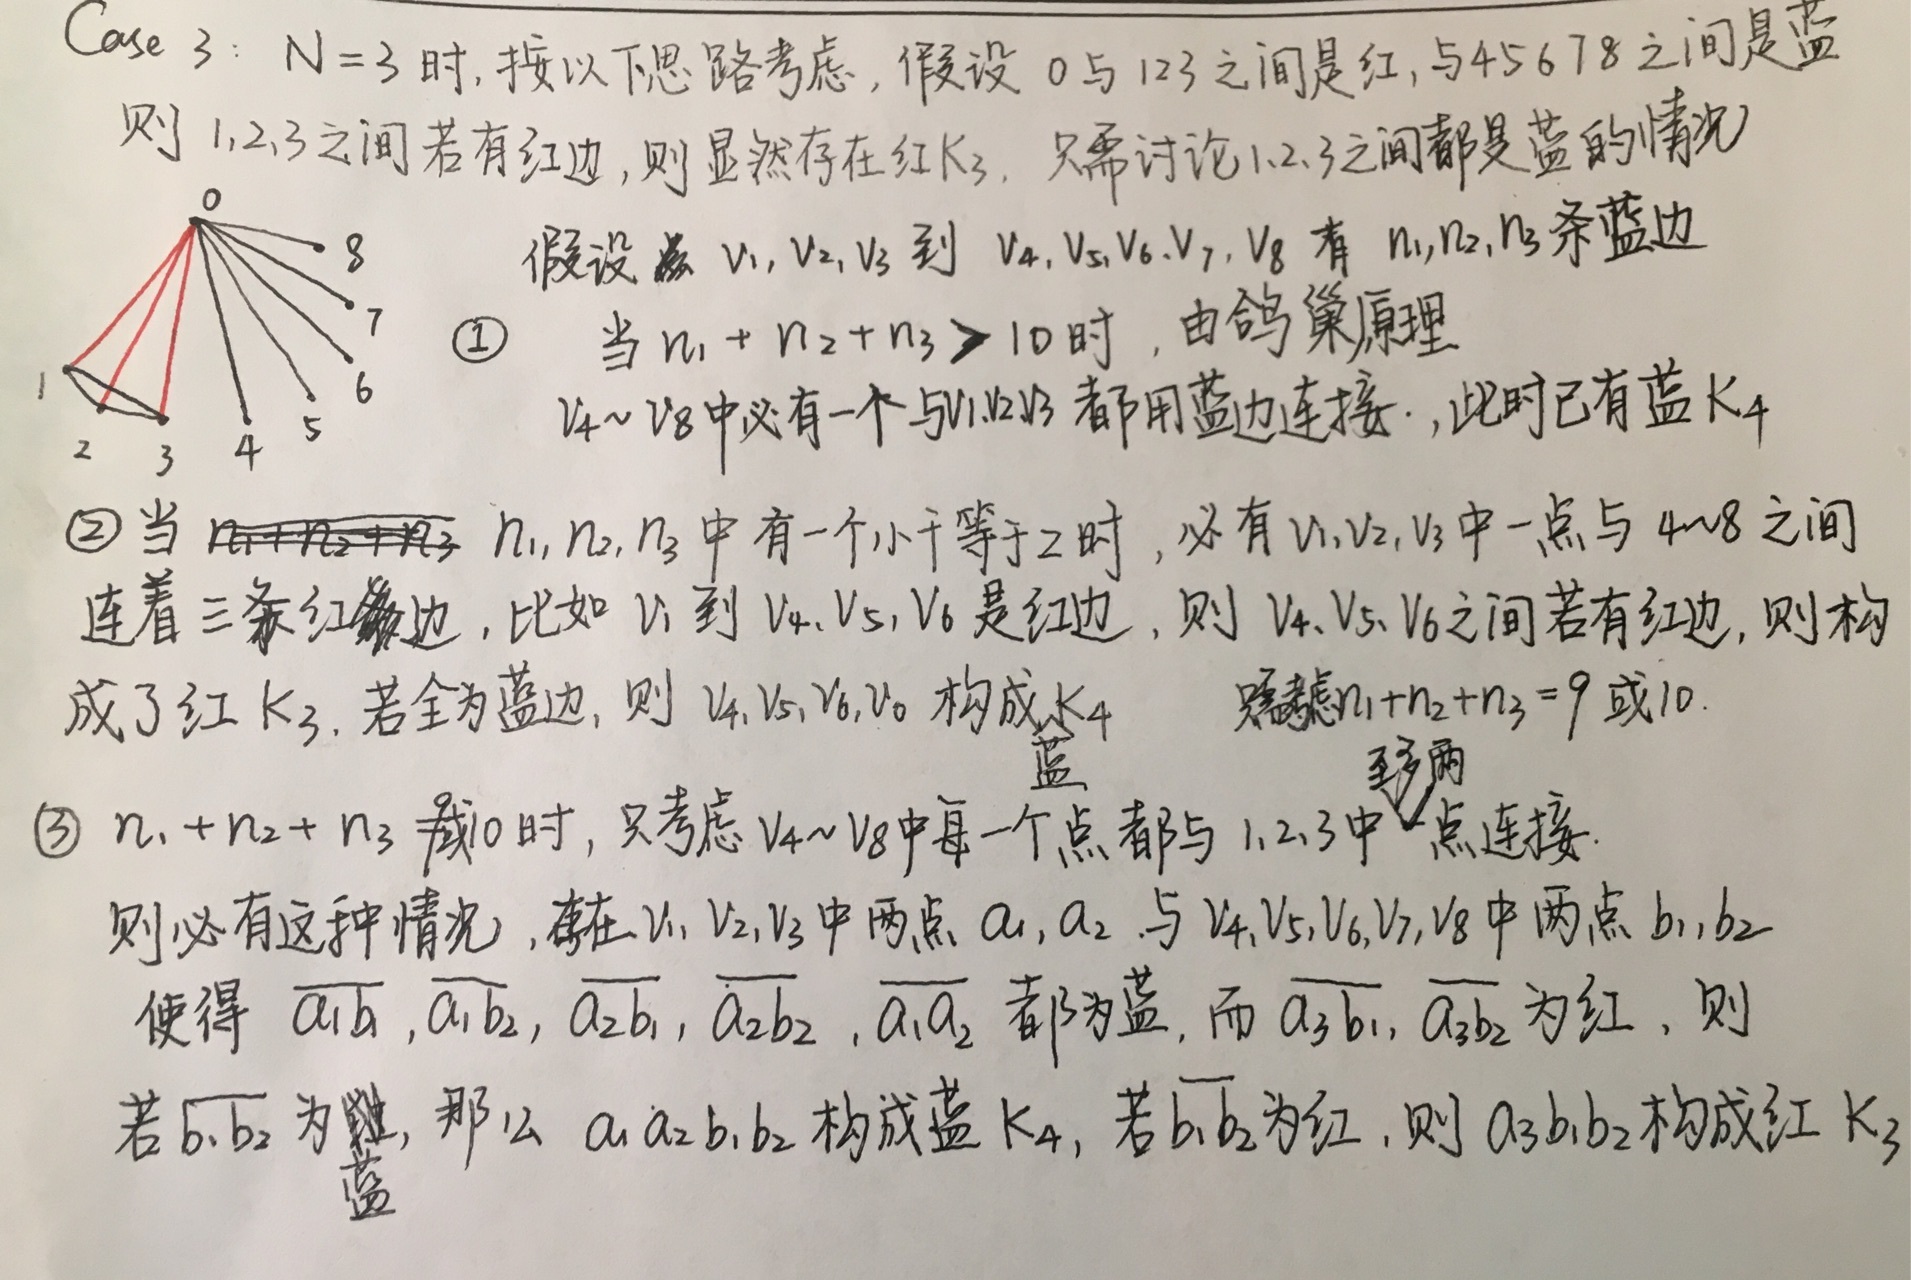 Case 3: N=3时,按以下思路考虑,假设 0与123之间是红,与45678之间是蓝
则 1,2,3之间若有红边,则显然存在红K3. 只需讨论1.2.3之间都是蓝的情况
0
8
7
6
5
4
3
2
1
假设 V1, V2, V3 到 V4, V5, V6, V7, V8 有 n1, n2, n3 条蓝边
① 当 n1 + n2 + n3 > 10时, 由鸽巢原理
V4~V8中必有一个与V1V2V3都用蓝边连接.,此时已有蓝K4
②当 n1+n2+n3 n1, n2, n3 中有一个小于等于2时, 必有V1, V2, V3中一点与 4~8之间
连着三条红边, 比如 V1 到 V4, V5, V6 是红边, 则 V4, V5, V6之间若有红边, 则构
成了红K3. 若全为蓝边, 则 V4, V5, V6, V0 构成蓝K4 只需考虑n1+n2+n3=9或10.
③ n1+n2+n3 = 9或10时, 只考虑V4~V8中每一个点都与1,2,3中至多两点连接.
则必有这种情况, 存在V1, V2, V3中两点 a1, a2 与 V4, V5, V6, V7, V8中两点 b1, b2
使得 a̅1̅b̅1̅, a̅1̅b̅2̅, a̅2̅b̅1̅, a̅2̅b̅2̅, a̅1̅a̅2̅ 都为蓝, 而 a̅3̅b̅1̅, a̅3̅b̅2̅ 为红, 则
若 b̅1̅b̅2̅ 为蓝, 那么 a1a2b1b2 构成蓝K4, 若b̅1̅b̅2̅为红, 则 a3b1b2构成红K3